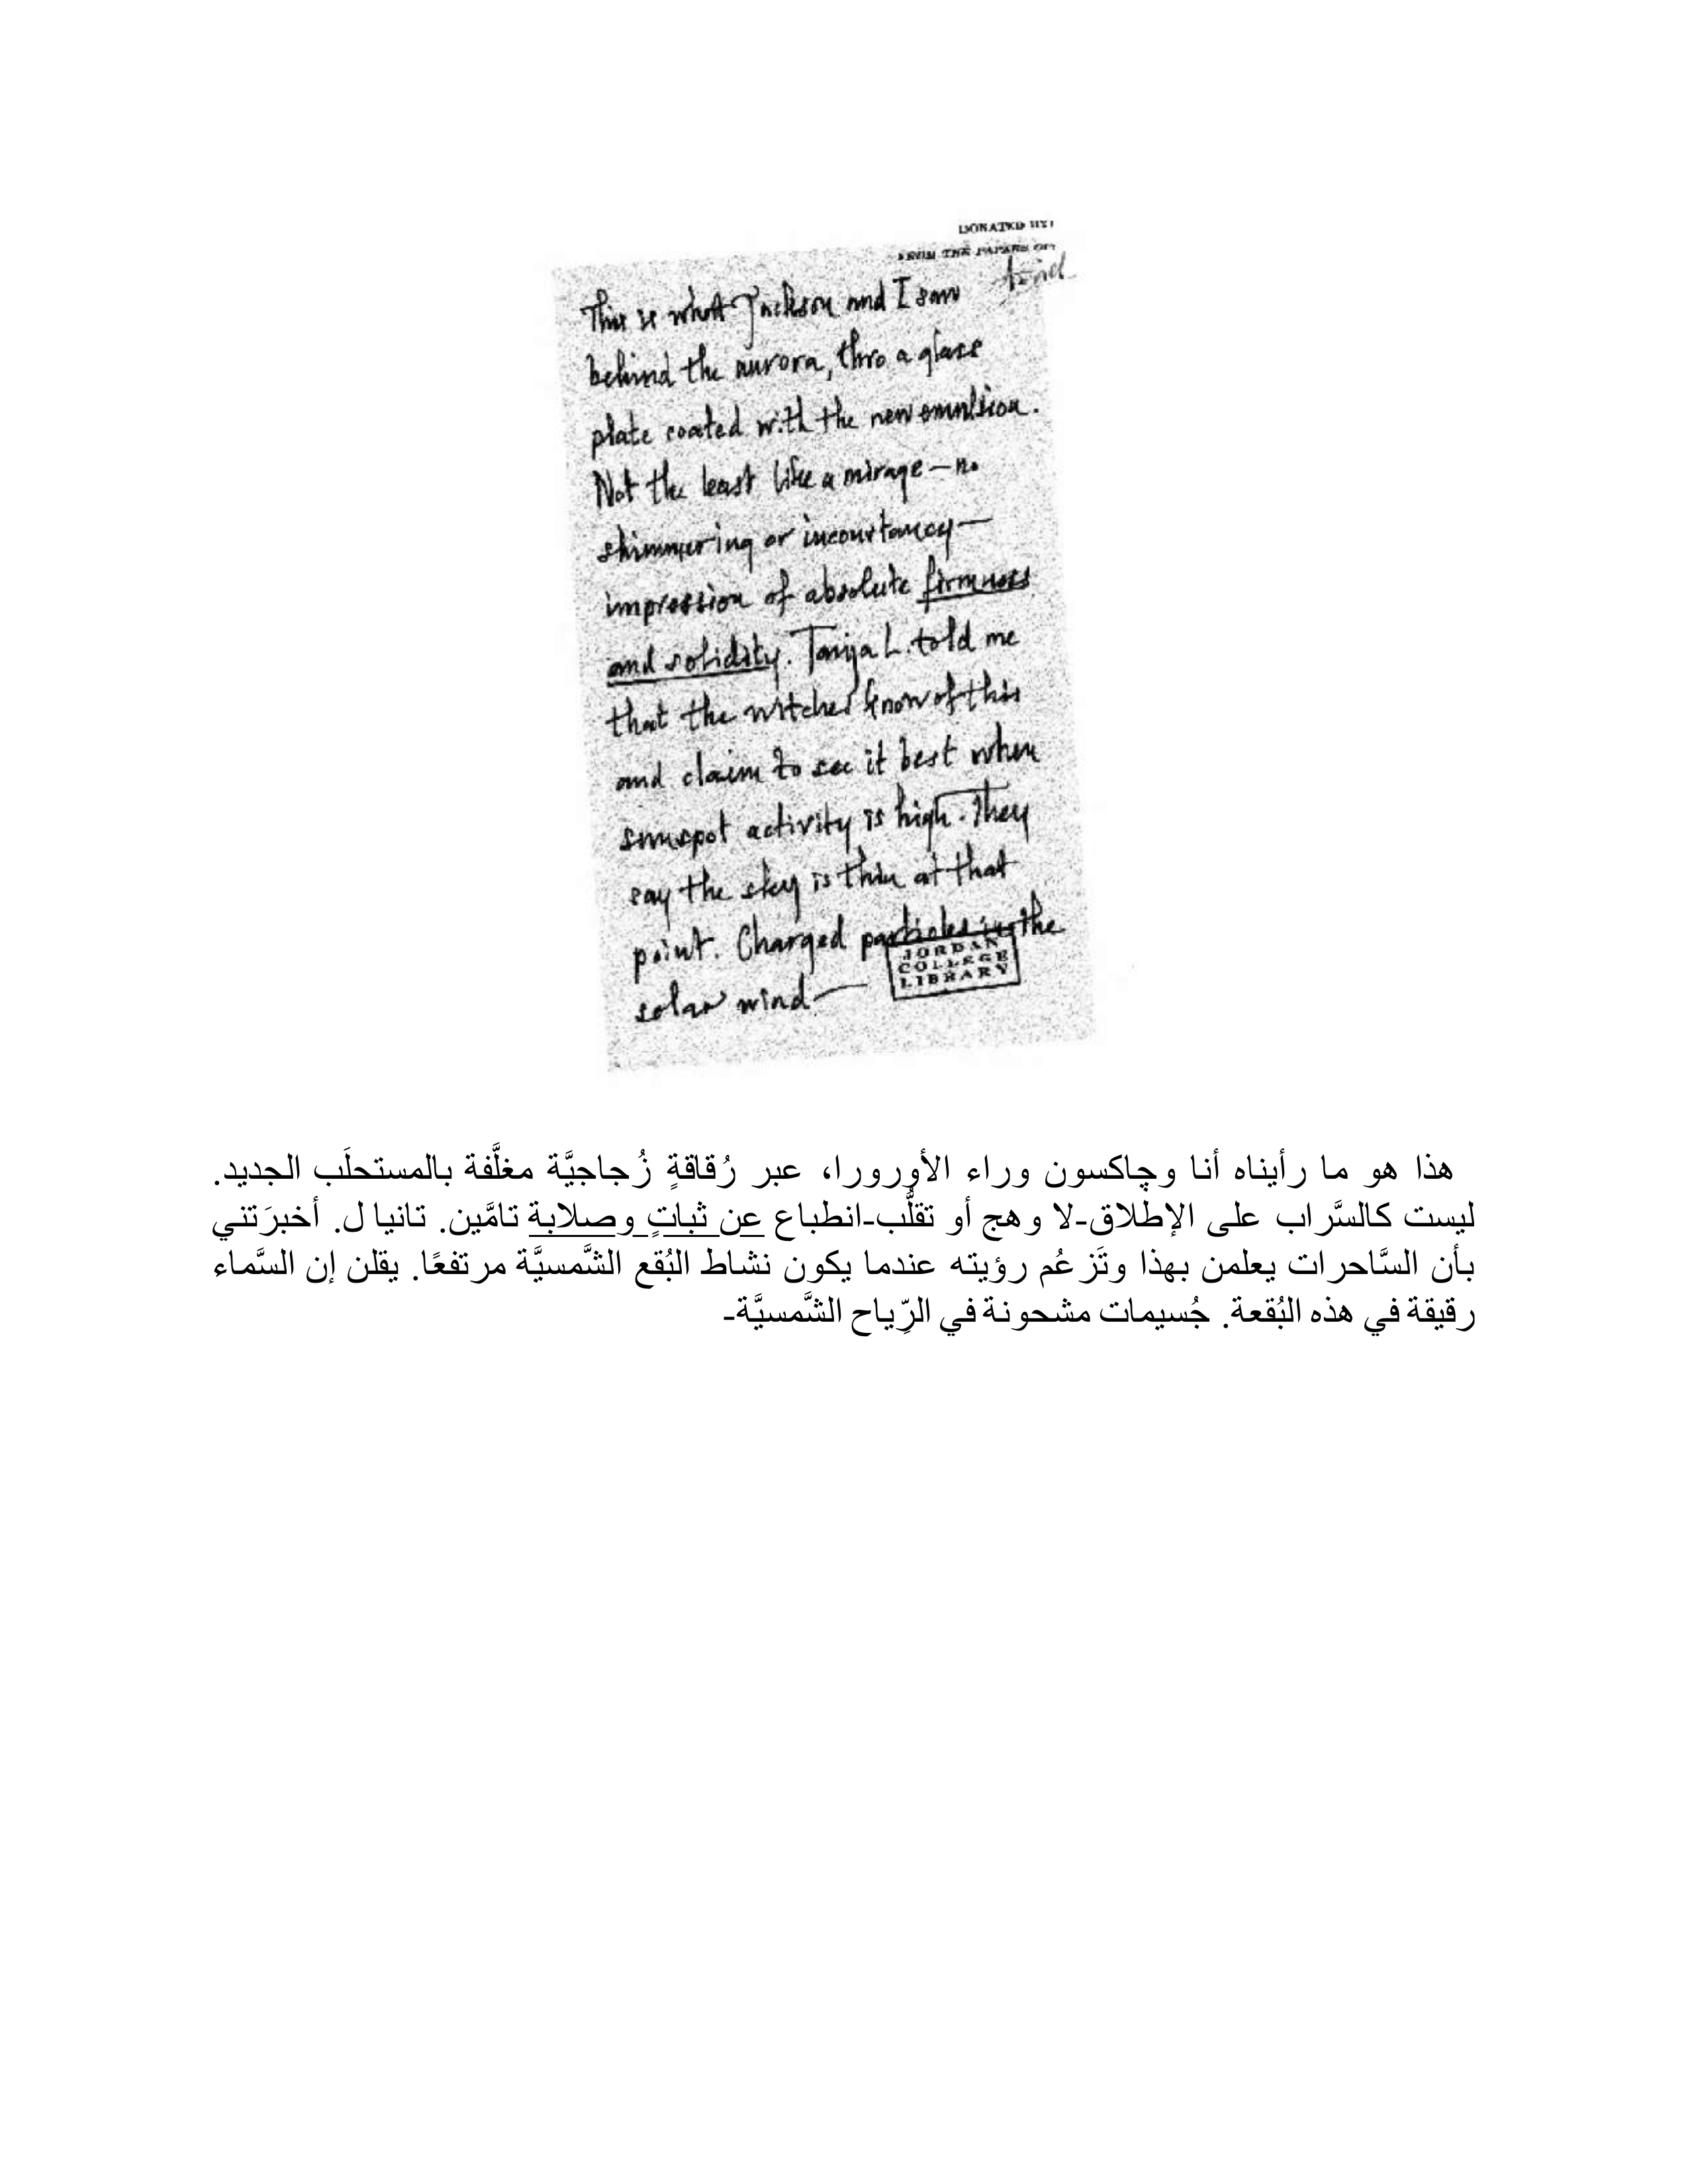 DONATED BY:
FROM THE PAPERS OF:
This is what Jackson and I saw
behind the aurora, thro a glass
plate coated with the new emulsion.
Not the least like a mirage — no
shimmering or inconstancy —
impression of absolute firmness
and solidity. Tanja L. told me
that the witches know of this
and claim to see it best when
sunspot activity is high. They
say the sky is thin at that
point. Charged particles in the
solar wind —
JORDAN
COLLEGE
LIBRARY
هذا هو ما رأيناه أنا وچاكسون وراء الأورورا، عبر رُقاقةٍ زُجاجيَّة مغلَّفة بالمستحلَب الجديد.
ليست كالسَّراب على الإطلاق-لا وهج أو تقلُّب-انطباع عن ثباتٍ وصلابة تامَّين. تانيا ل. أخبرَتني
بأن السَّاحرات يعلمن بهذا وتَزعُم رؤيته عندما يكون نشاط البُقع الشَّمسيَّة مرتفعًا. يقلن إن السَّماء
رقيقة في هذه البُقعة. جُسيمات مشحونة في الرِّياح الشَّمسيَّة-